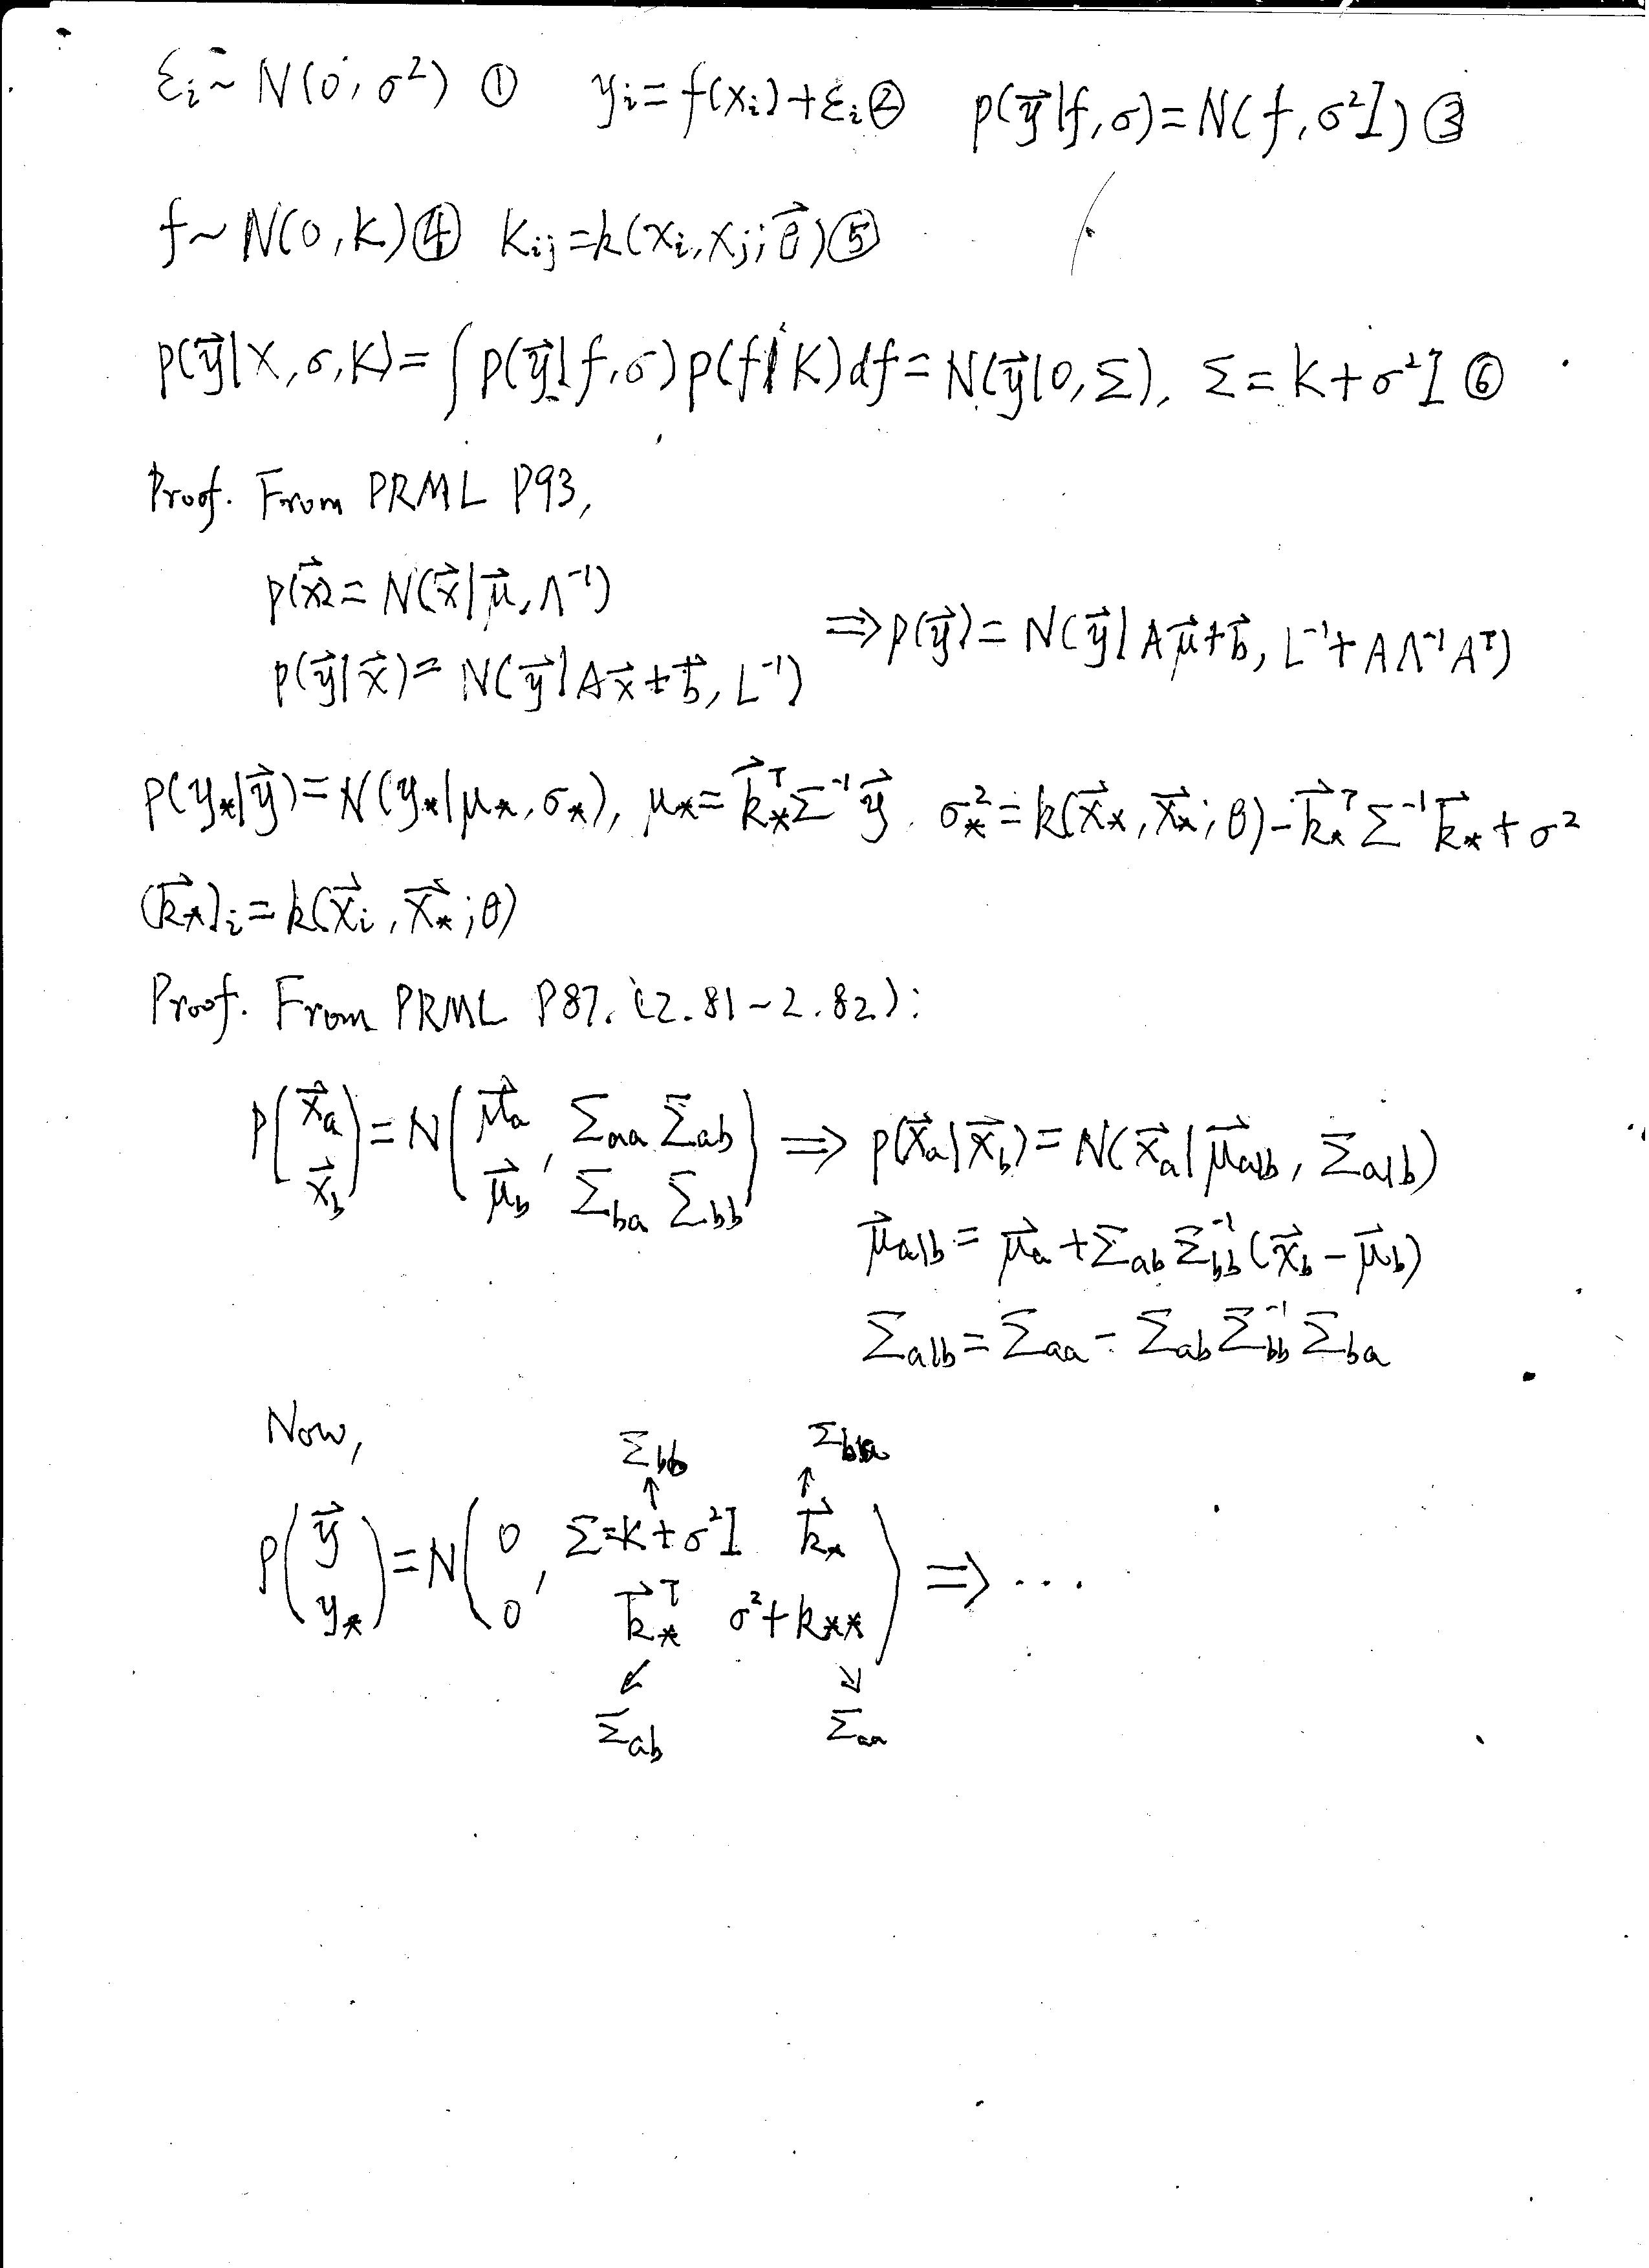 εᵢ ~ N(0, σ²) ① yᵢ = f(xᵢ) + εᵢ ② p(y⃗|f, σ) = N(f, σ²I) ③
f ~ N(0, K) ④ Kᵢⱼ = k(xᵢ, xⱼ; θ⃗) ⑤
p(y⃗|X, σ, K) = ∫ p(y⃗|f, σ) p(f|K) df = N(y⃗|0, Σ), Σ = K + σ²I ⑥
Proof. From PRML P93,
p(x⃗) = N(x⃗|μ⃗, Λ⁻¹)
p(y⃗|x⃗) = N(y⃗|Ax⃗ + b⃗, L⁻¹) ⇒ p(y⃗) = N(y⃗|Aμ⃗ + b⃗, L⁻¹ + AΛ⁻¹Aᵀ)
p(y_*|y⃗) = N(y_*|μ_*, σ_*), μ_* = k⃗_*ᵀ Σ⁻¹ y⃗, σ_*² = k(x⃗_*, x⃗_*; θ) - k⃗_*ᵀ Σ⁻¹ k⃗_* + σ²
(k⃗_*)ᵢ = k(x⃗ᵢ, x⃗_*; θ)
Proof. From PRML P87. (2.81~2.82):
p(x⃗_a x⃗_b) = N(μ⃗_a μ⃗_b, Σ_aa Σ_ab Σ_ba Σ_bb) ⇒ p(x⃗_a|x⃗_b) = N(x⃗_a|μ⃗_a|b, Σ_a|b)
μ⃗_a|b = μ⃗_a + Σ_ab Σ_bb⁻¹ (x⃗_b - μ⃗_b)
Σ_a|b = Σ_aa - Σ_ab Σ_bb⁻¹ Σ_ba
Now,
Σ_bb Σ_ba
↑ ↑
p(y⃗ y_*) = N(0 0, Σ=K+σ²I k⃗_* k⃗_*ᵀ σ²+k_**) ⇒ ...
↙ ↘
Σ_ab Σ_aa